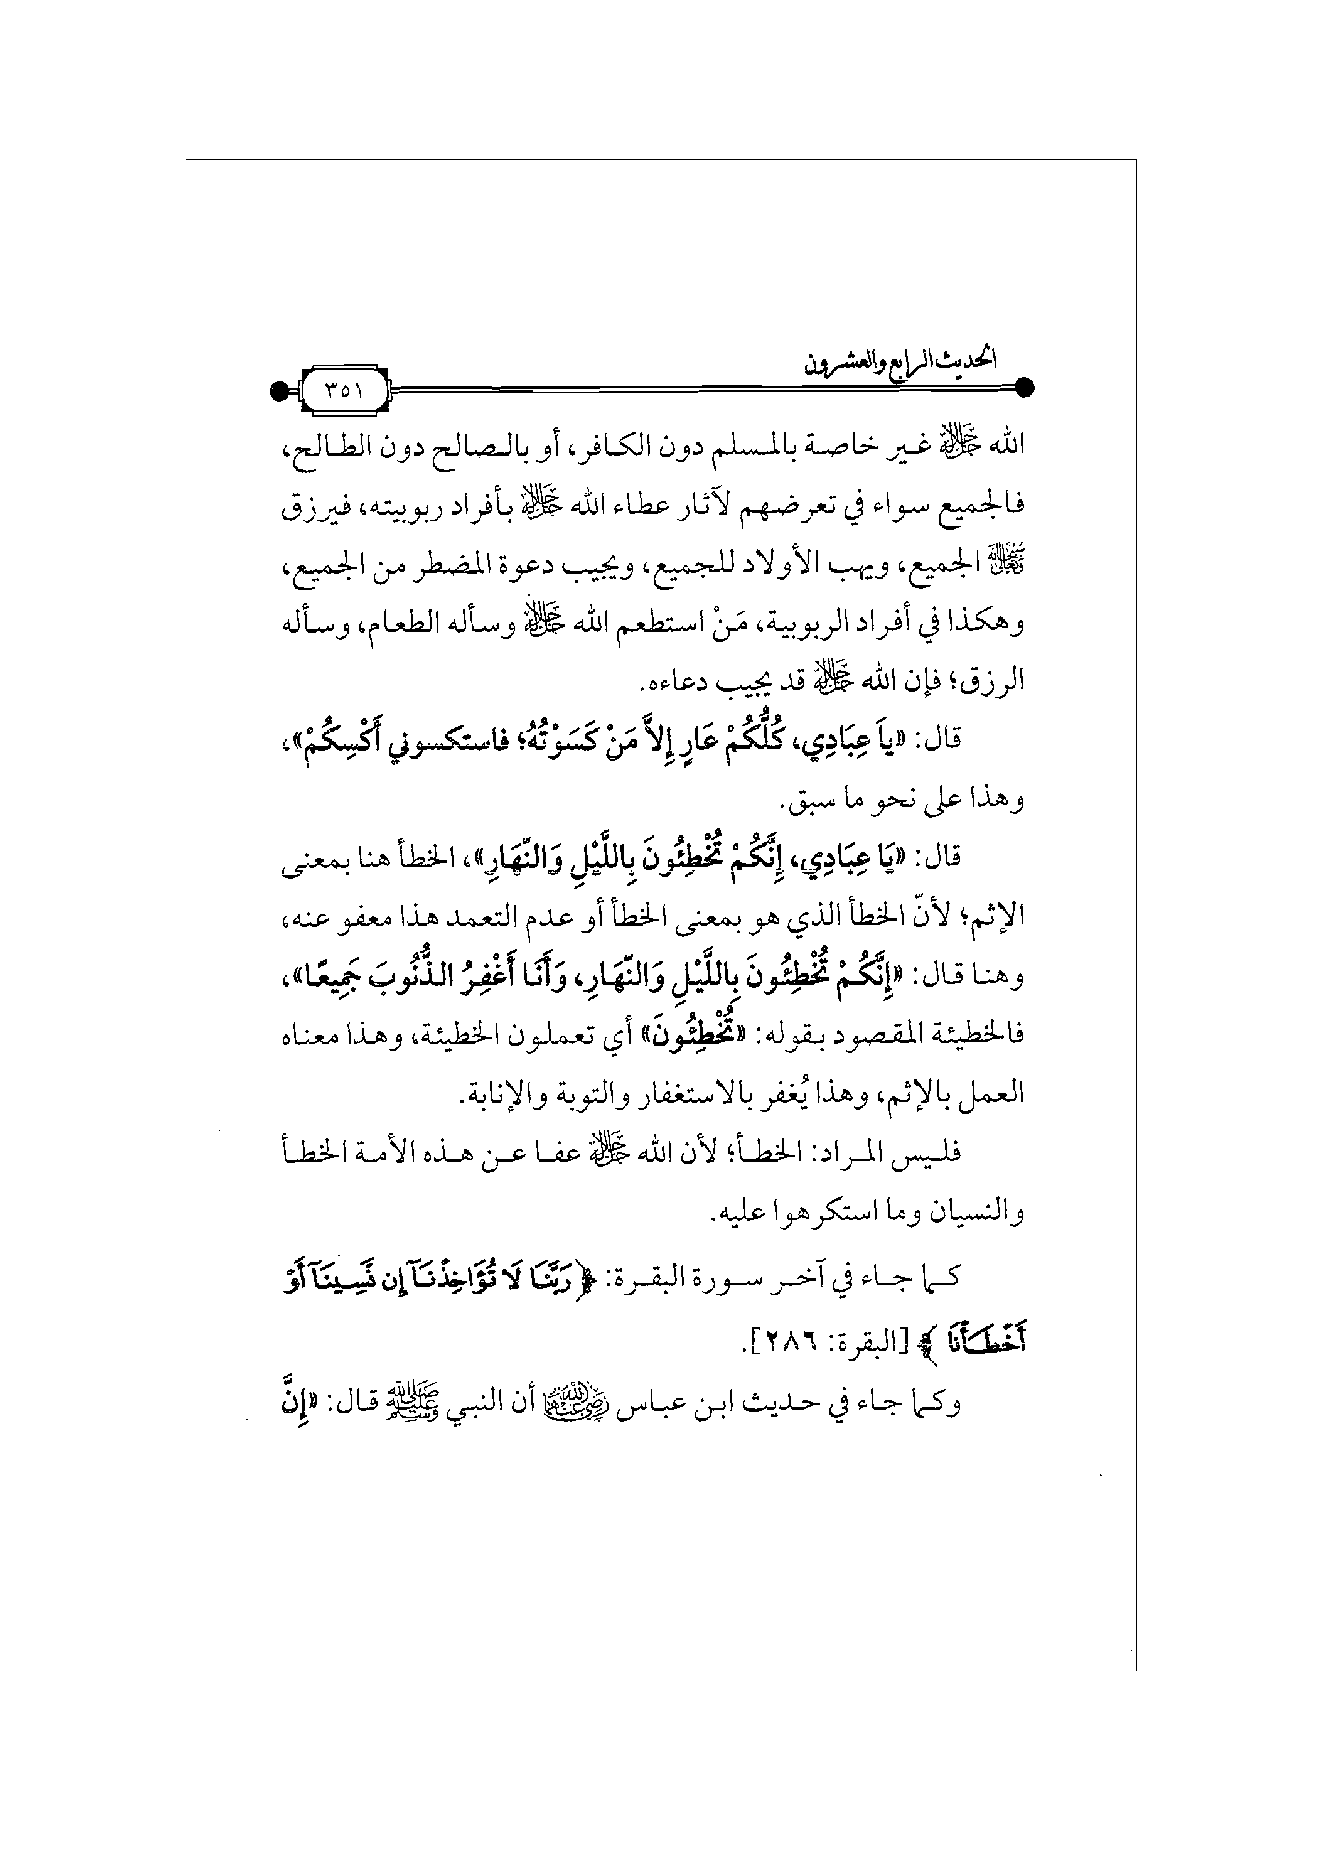 الحديث الرابع والعشرون
٣٥١
الله ﷻ غير خاصة بالمسلم دون الكافر، أو بالصالح دون الطالح،
فالجميع سواء في تعرضهم لآثار عطاء الله ﷻ بأفراد ربوبيته، فيرزق
الجميع، ويهب الأولاد للجميع، ويجيب دعوة المضطر من الجميع،
وهكذا في أفراد الربوبية، مَنْ استطعم الله ﷻ وسأله الطعام، وسأله
الرزق؛ فإن الله ﷻ قد يجيب دعاءه.
قال: «ياَ عِبَادِي، كُلُّكُمْ عَارٍ إِلاَّ مَنْ كَسَوْتُهُ؛ فاستكسوني أَكْسِكُمْ»،
وهذا على نحو ما سبق.
قال: «يَا عِبَادِي، إِنَّكُمْ تُخْطِئُونَ بِاللَّيْلِ وَالنّهَارِ»، الخطأ هنا بمعنى
الإثم؛ لأنّ الخطأ الذي هو بمعنى الخطأ أو عدم التعمد هذا معفو عنه،
وهنا قال: «إِنَّكُمْ تُخْطِئُونَ بِاللَّيْلِ وَالنّهَارِ، وَأَنَا أَغْفِرُ الذُّنُوبَ جَمِيعًا»،
فالخطيئة المقصود بقوله: «تُخْطِئُونَ» أي تعملون الخطيئة، وهذا معناه
العمل بالإثم، وهذا يُغفر بالاستغفار والتوبة والإنابة.
فليس المراد: الخطأ؛ لأن الله ﷻ عفا عن هذه الأمة الخطأ
والنسيان وما استكرهوا عليه.
كما جاء في آخر سورة البقرة: ﴿ رَبَّنَا لَا تُؤَاخِذْنَآ إِن نَّسِينَآ أَوْ
أَخْطَأْنَا ﴾ [البقرة: ٢٨٦].
وكما جاء في حديث ابن عباس رضي الله عنهما أن النبي ﷺ قال: «إِنَّ